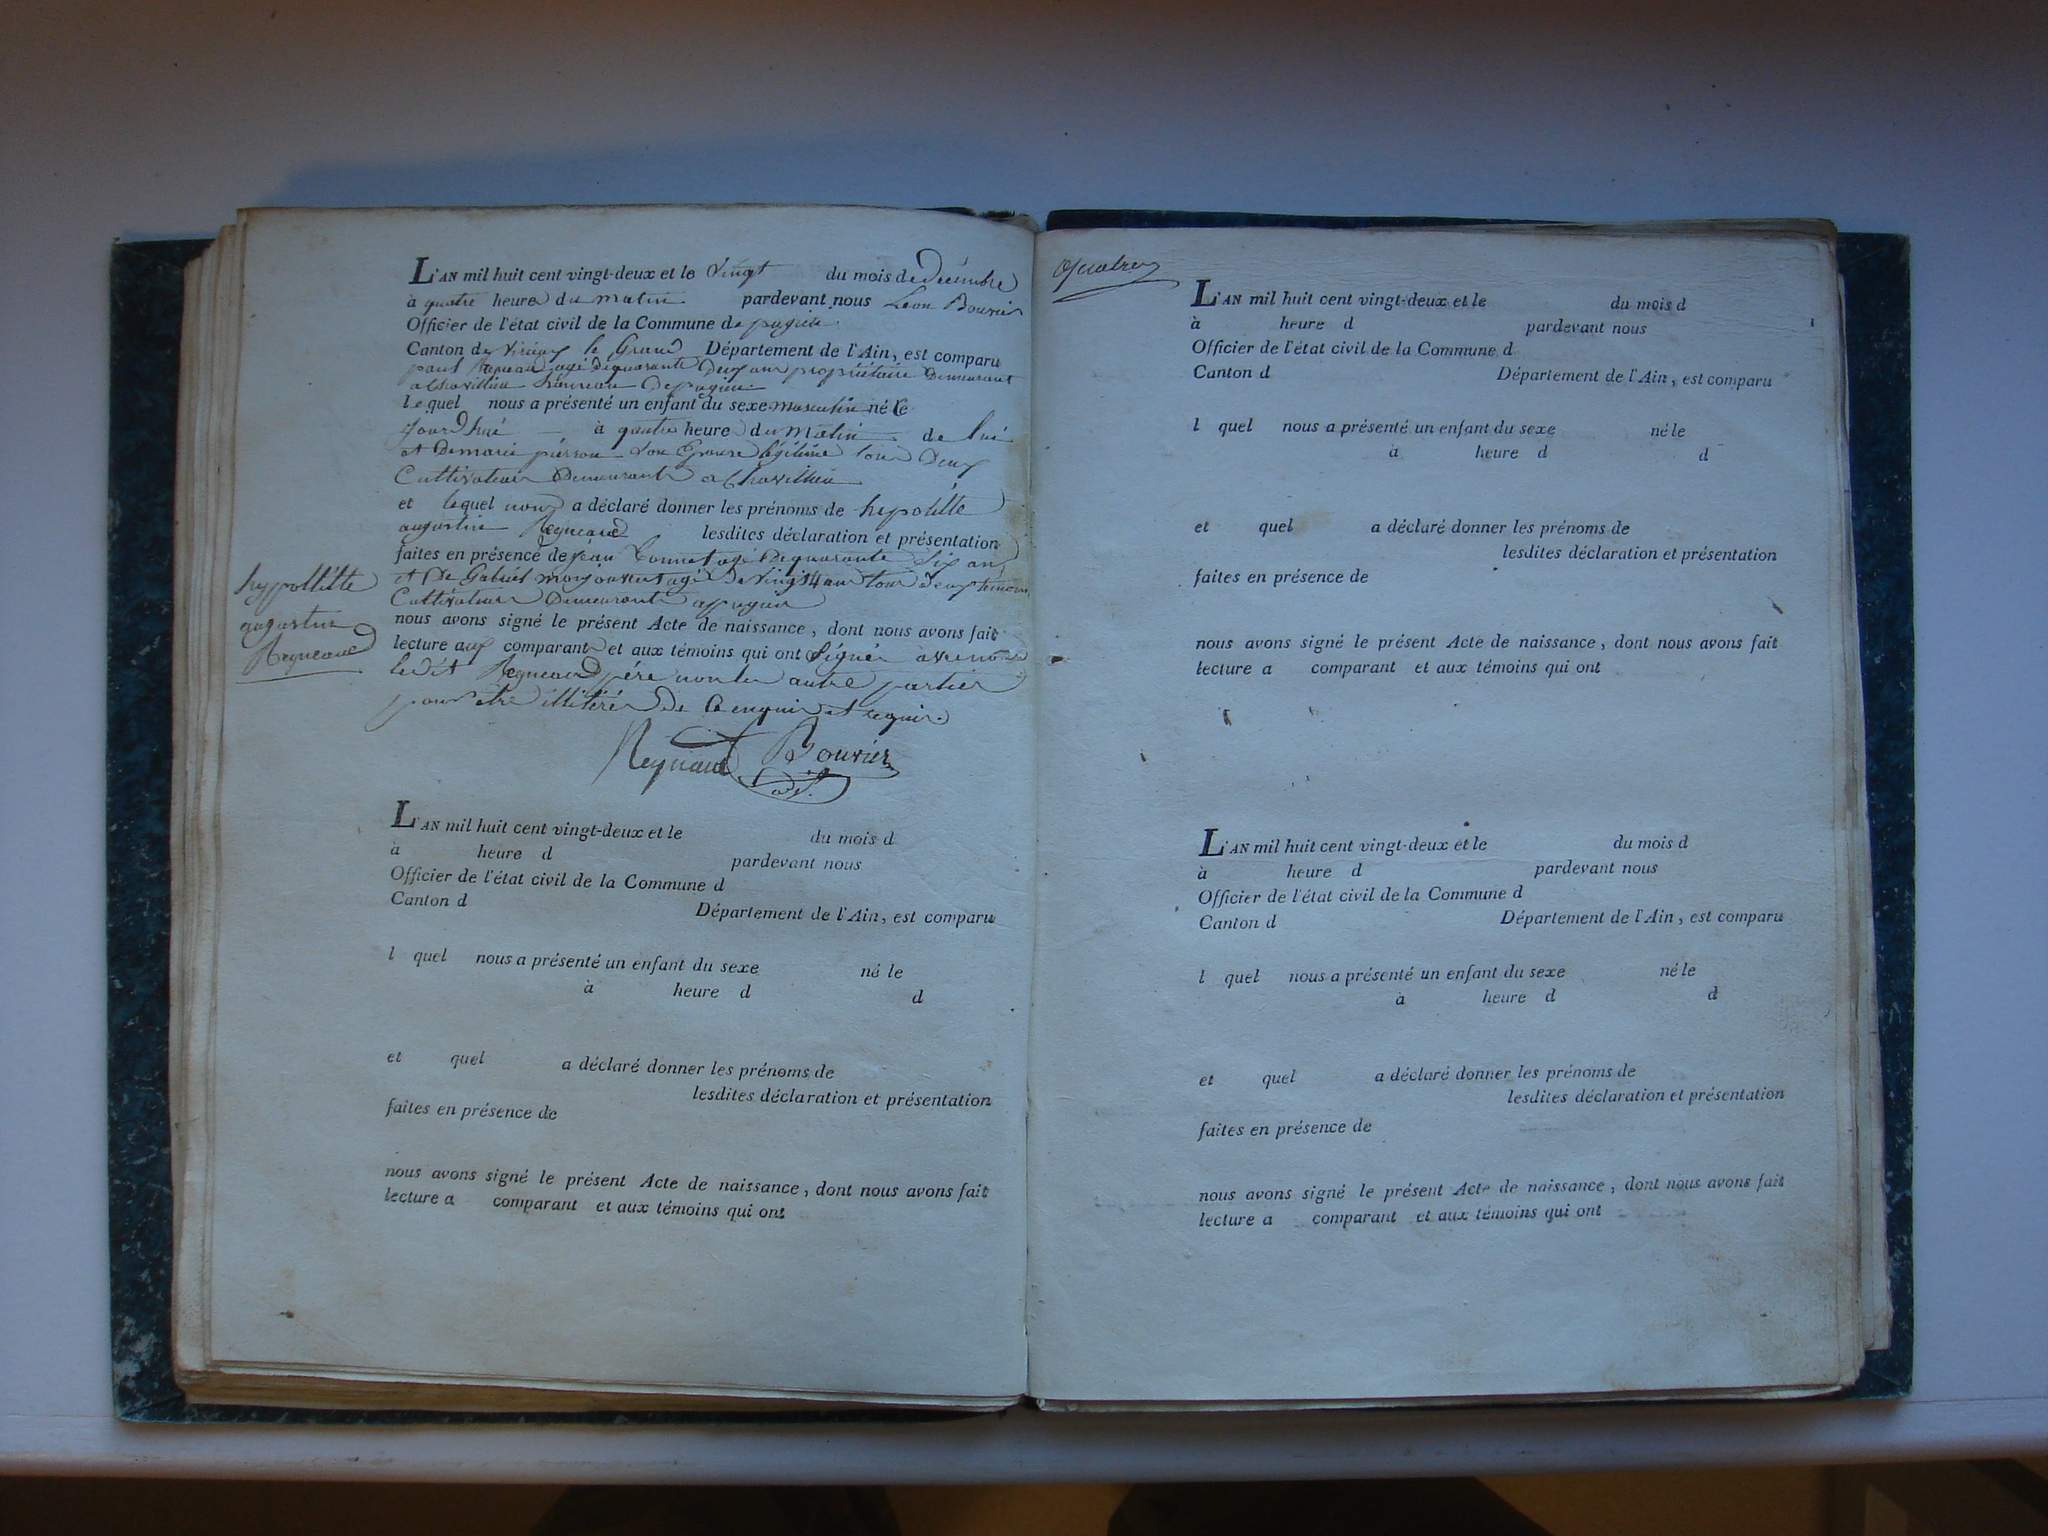 L'AN mil huit cent vingt-deux et le vingt du mois de decémbre
à quatre heure du matin pardevant nous Léon Bouvier
Officier de l'état civil de la Commune de pugieu
Canton de Virieux le Grand Département de l'Ain, est comparu
paul agé de quarante Deux ans propriétaire Demeurant
a Chavillieu hameau De pugieu
le quel nous a présenté un enfant du sexe masculin né le
jourdhui à quatre heure du matin de lui
et De marie pierron Son Epouse légitime tous Deux
Cultivateur Demeurant a Chavillieu
et lequel nous a déclaré donner les prénoms de hypolitte
augustin Reyneaud lesdites déclaration et présentation
faites en présence de jean agé De quarante Six ans
et De Gabriel agé De vingt 4 ans tous deux temoins
Cultivateur Demeurant a pugieu
nous avons signé le présent Acte de naissance, dont nous avons fait
lecture aux comparant et aux témoins qui ont Signér avec nous
ledit Reyneaud pére non les autre parties
pour etre illitérér De Ce enquis et requis.
Reynaud Bouvier
hypollitte
augustin
Reyneaud
L'AN mil huit cent vingt-deux et le du mois d
à heure d pardevant nous
Officier de l'état civil de la Commune d
Canton d Département de l'Ain, est comparu
l quel nous a présenté un enfant du sexe né le
à heure d d
et quel a déclaré donner les prénoms de
lesdites déclaration et présentation
faites en présence de
nous avons signé le présent Acte de naissance, dont nous avons fait
lecture a comparant et aux témoins qui ont
L'AN mil huit cent vingt-deux et le du mois d
à heure d pardevant nous
Officier de l'état civil de la Commune d
Canton d Département de l'Ain, est comparu
l quel nous a présenté un enfant du sexe né le
à heure d d
et quel a déclaré donner les prénoms de
lesdites déclaration et présentation
faites en présence de
nous avons signé le présent Acte de naissance, dont nous avons fait
lecture a comparant et aux témoins qui ont
L'AN mil huit cent vingt-deux et le du mois d
à heure d pardevant nous
Officier de l'état civil de la Commune d
Canton d Département de l'Ain, est comparu
l quel nous a présenté un enfant du sexe né le
à heure d d
et quel a déclaré donner les prénoms de
lesdites déclaration et présentation
faites en présence de
nous avons signé le présent Acte de naissance, dont nous avons fait
lecture a comparant et aux témoins qui ont